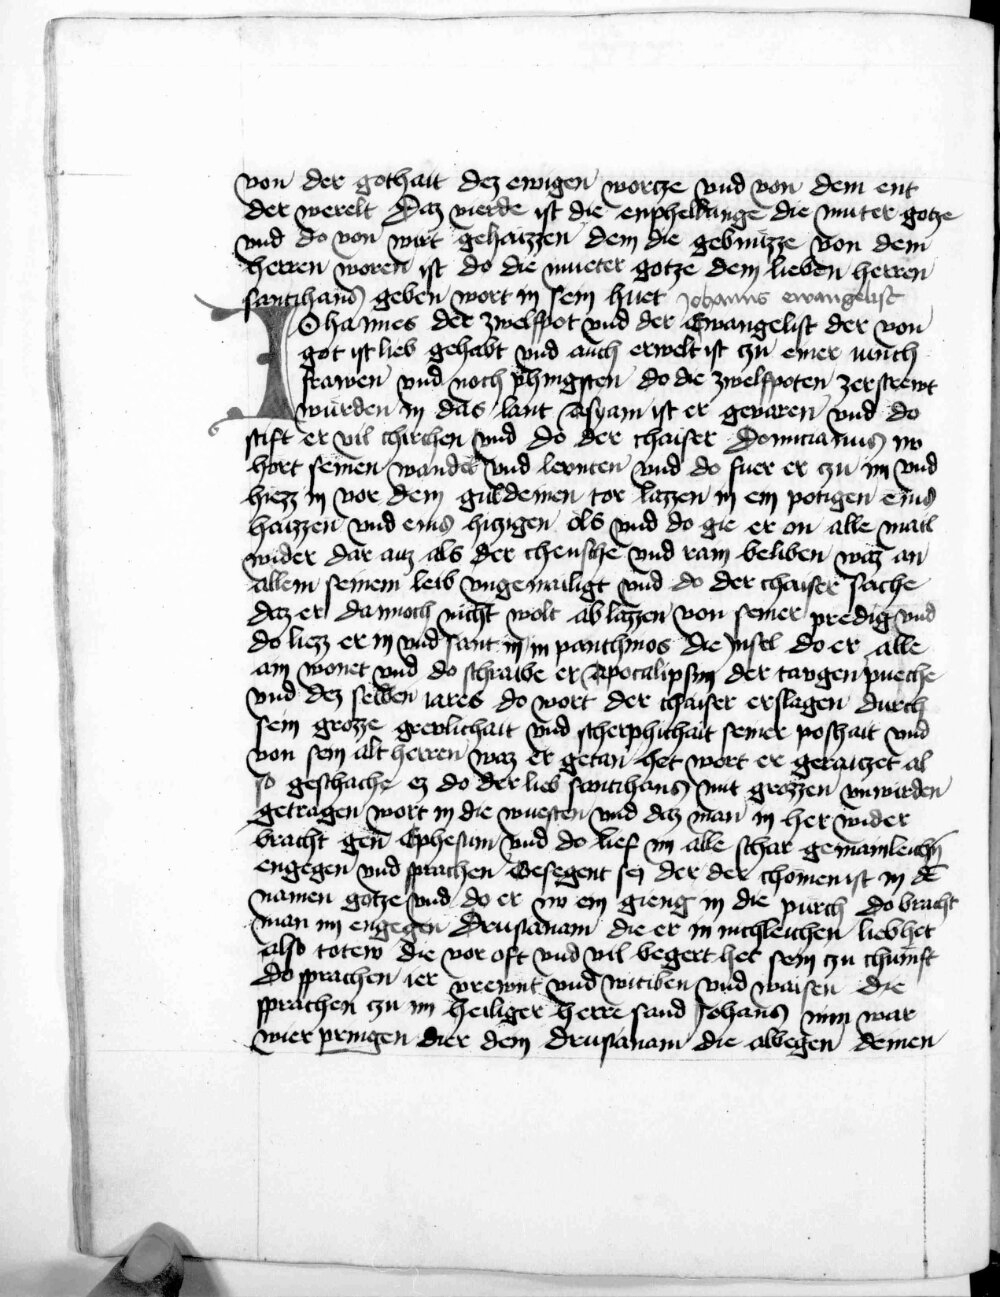 von der gothait dez ewigen wortze vnd von dem ent
der werelt Daz vierde ist die enphelhunge die muter gotze
vnd do von wirt gehaizzen dem die gehaizze von dem
herren woren ist do die mueter gotze dem lieben herren
santihans geben wort in sein huet Johannis ewangelist
Iohannes der zwelfpot vnd der Ewangelist der von
got ist lieb gehabt vnd auch erwelt ist czu einer iunch
frawen vnd noch phingsten do die zwelfpoten zerstrewt
wurden in das lant Asyam ist er gevaren vnd do
stift er vil chirchen vnd do der chaiser Domicianus nw
hort seinen wandel vnd lernten vnd do fuer er czu im vnd
hiezz in vor dem guldeinen tor lazzen in ein potigen eins
haizzen vnd eins hiczigen ols vnd do gie er on alle mail
wider dar auz als der cheusche vnd rain beliben waz an
allem seinem leib vngemailigt vnd do der chaiser sache
daz er dannoch nicht wolt ablazzen von seiner predig vnd
do liezz er in vnd sant in in panthmos die Insel do er alle
ain wonet vnd do schraibe er Apocalipsim der taugen pueche
vnd dez selben iares do wort der chaiser erslagen durch
sein grozze grevlichait vnd scherphichait seiner poshait vnd
von sein alt herren waz er getan het wort er geraitzet al
so geschache ez do der lieb santihans mit grozzen vnwirden
getragen wort in die wuesten vnd daz man in her wider
bracht gen Ephesum vnd do lief im alle schar gemainleichn
engegen vnd sprachen Gesegent sej der der chomen ist in dē
namen gotze vnd do er nw ein gieng in die purch do bracht
man im engegen Drusianam die er in inchleichen lieb het
also totew die vor oft vnd vil begert het sein czu chumft
do sprachen ier vrewnt vnd witiben vnd waisen die
sprachen czu im heiliger herre sand Johans nim war
wier pringen dier dein drusianam die albegen deinen